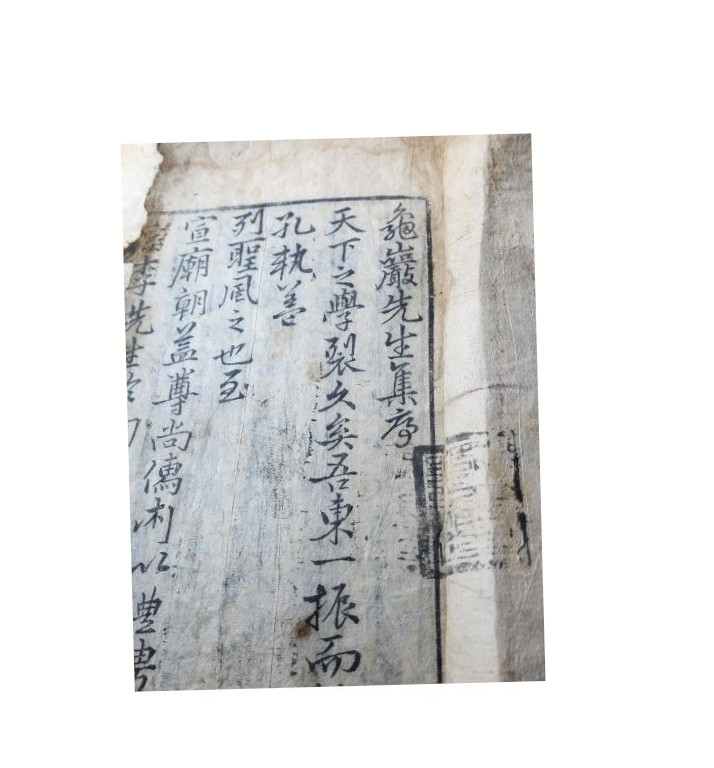 龜巖先生集序
天下之學裂久矣吾東一振而
孔執善
列聖風之也至
宣廟朝益尊尚儒術以禮
李先生